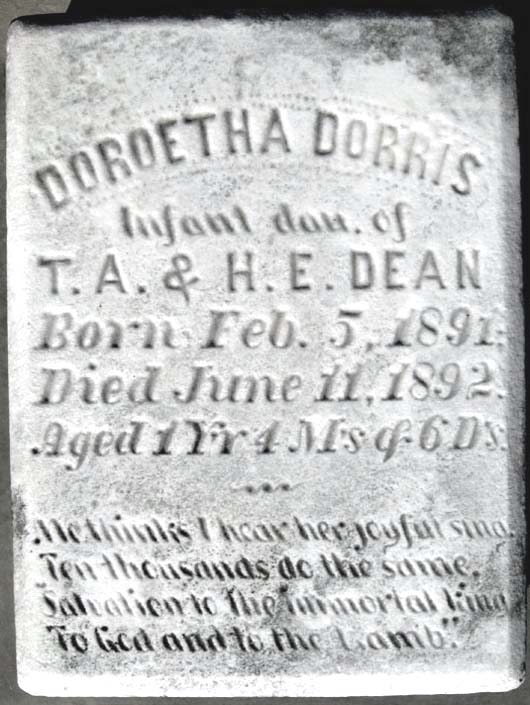 DOROETHA DORRIS
Infant dau. of
T. A. & H. E. DEAN
Born Feb. 5, 1891.
Died June 11, 1892.
Aged 1 Yr 4 Ms & 6 Ds.
Methinks I hear her joyful sing.
Ten thousands do the same.
"Salvation to the immortal King
To God and to the Lamb".